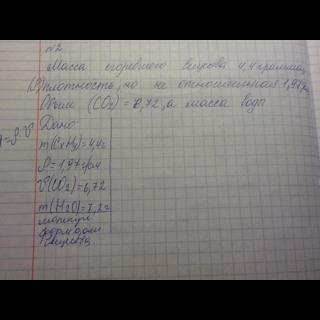 №2
Масса сгоревшего вещества 4,4 грамма,
(ρ) плотность, но не относительная 1,97г.
Объём (CO2) = 6,72, а масса воды
Дано:
m=ρ·V
m(CxHy)=4,4г
ρ=1,97г/л
V(CO2)=6,72
m(H2O)=7,2г
молекул.
формула
вещества.